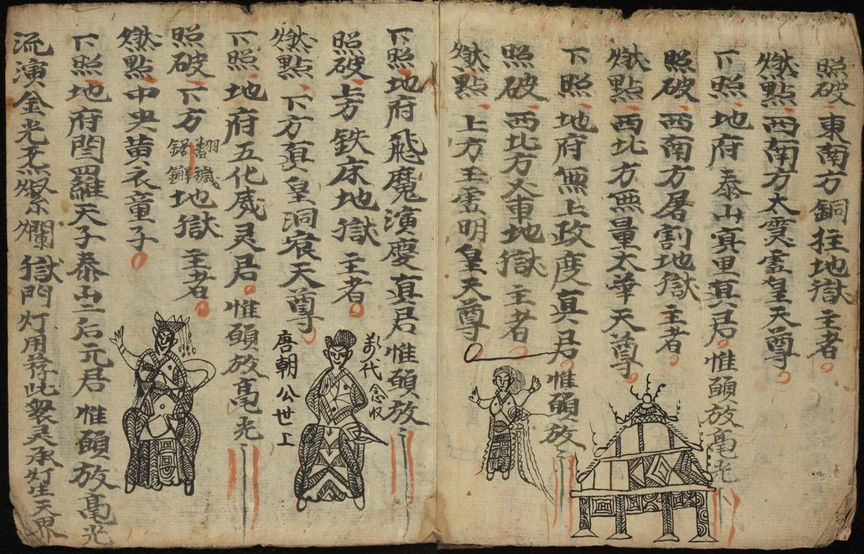 照破東南方銅柱地獄主者
燃點西南方太霊虛皇天尊
下照地府泰山真君惟願放毫光
照破西南方屠割地獄主者
燃點西北方無量太華天尊
下照地府無上政度真君惟願放
照破西北方火車地獄主者
燃點上方玉虛明皇天尊
下照地府飛魔演慶真君惟願放
照破上方鉄床地獄主者
代念
燃點下方真皇洞天尊
唐朝公世上
下照地府五化威灵君惟願放毫光
照破下方地獄主者
燃點中央黄衣童子
下照地府閆羅天子泰山后元君惟願放毫光
流演金光燦爛獄門灯用荐此衆灵承灯生天界